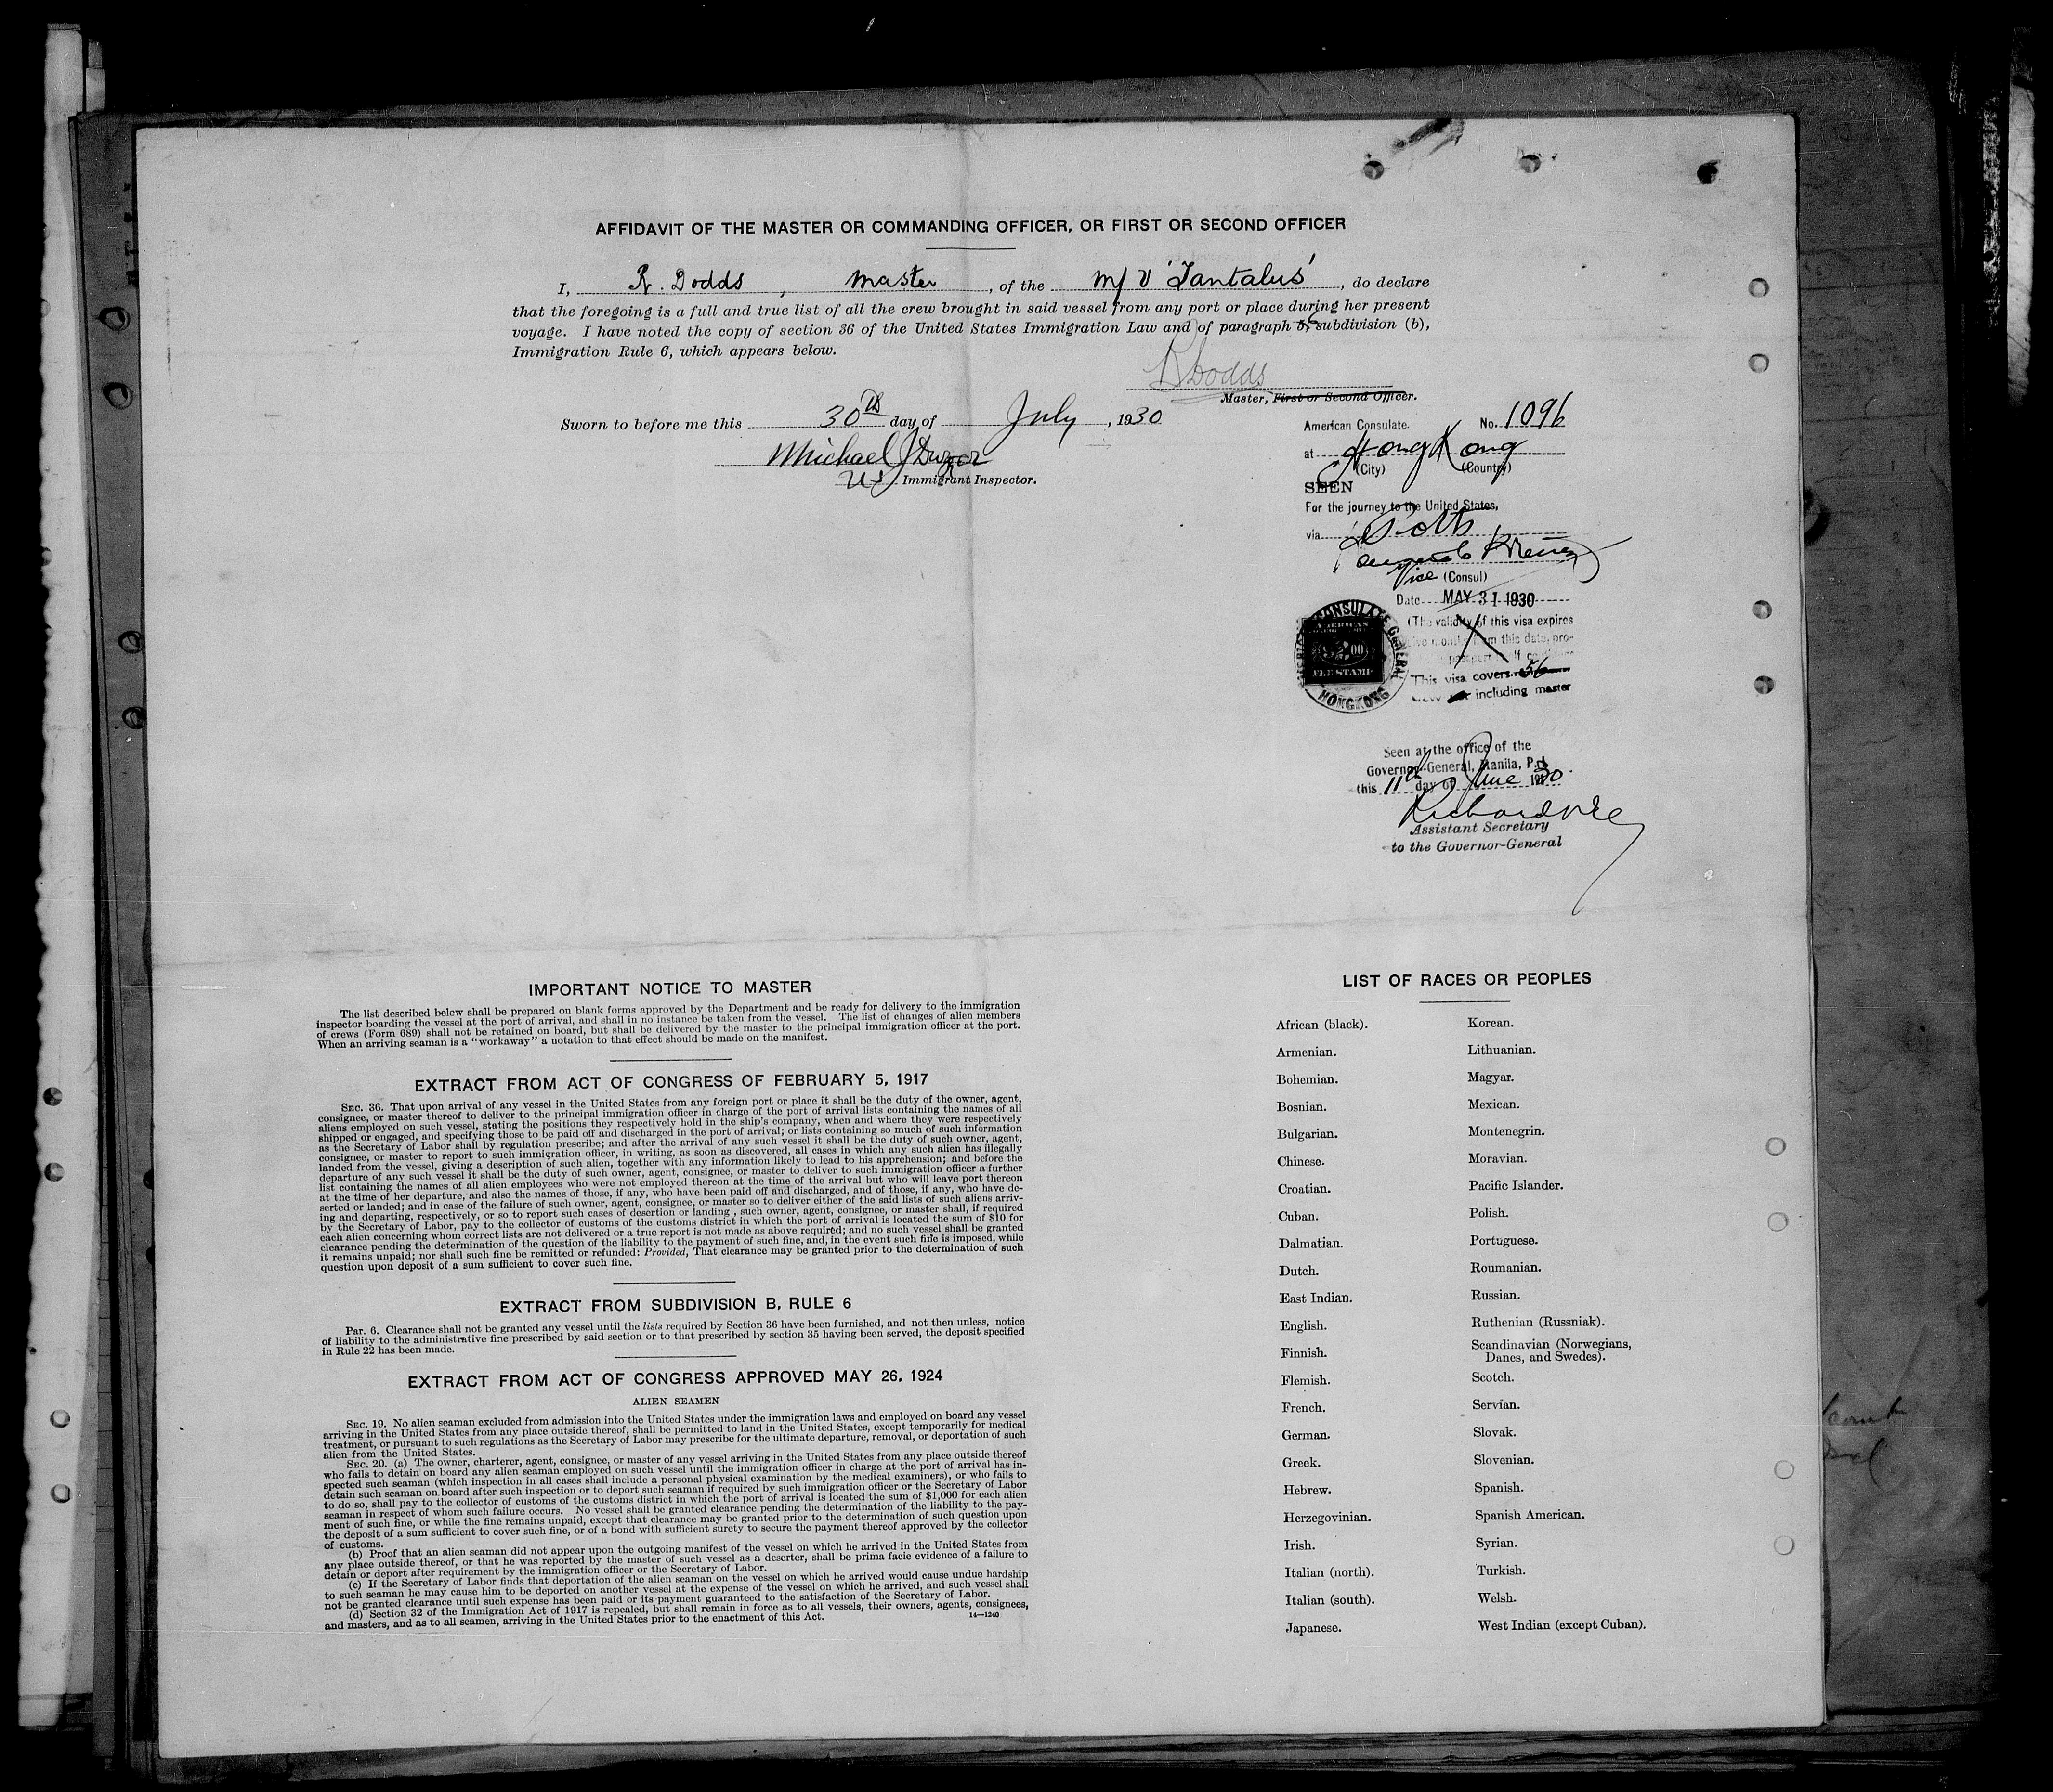 AFFIDAVIT OF THE MASTER OR COMMANDING OFFICER, OR FIRST OR SECOND OFFICER
I, R. Dodds, Master, of the M/V 'Tantalus', do declare
that the foregoing is a full and true list of all the crew brought in said vessel from any port or place during her present
voyage. I have noted the copy of section 36 of the United States Immigration Law and of paragraph 6, subdivision (b),
Immigration Rule 6, which appears below.
R Dodds
Master, First or Second Officer.
Sworn to before me this 30th day of July, 1930
Michael J Dwyer
US Immigrant Inspector.
American Consulate. No. 1096
at Hong Kong
(City) (Country)
SEEN
For the journey to the United States,
via
Vice (Consul)
Date MAY 31 1930
(The validity of this visa expires
from this date, pro-
This visa covers 56
including master
AMERICAN CONSULATE GENERAL
HONGKONG
AMERICAN
$2.00
FEE STAMP
Seen at the office of the
Governor-General, Manila, P.I.
this 11th day of June 1930.
Assistant Secretary
to the Governor-General
IMPORTANT NOTICE TO MASTER
The list described below shall be prepared on blank forms approved by the Department and be ready for delivery to the immigration
inspector boarding the vessel at the port of arrival, and shall in no instance be taken from the vessel. The list of changes of alien members
of crews (Form 689) shall not be retained on board, but shall be delivered by the master to the principal immigration officer at the port.
When an arriving seaman is a "workaway" a notation to that effect should be made on the manifest.
EXTRACT FROM ACT OF CONGRESS OF FEBRUARY 5, 1917
SEC. 36. That upon arrival of any vessel in the United States from any foreign port or place it shall be the duty of the owner, agent,
consignee, or master thereof to deliver to the principal immigration officer in charge of the port of arrival lists containing the names of all
aliens employed on such vessel, stating the positions they respectively hold in the ship's company, when and where they were respectively
shipped or engaged, and specifying those to be paid off and discharged in the port of arrival; or lists containing so much of such information
as the Secretary of Labor shall by regulation prescribe; and after the arrival of any such vessel it shall be the duty of such owner, agent,
consignee, or master to report to such immigration officer, in writing, as soon as discovered, all cases in which any such alien has illegally
landed from the vessel, giving a description of such alien, together with any information likely to lead to his apprehension; and before the
departure of any such vessel it shall be the duty of such owner, agent, consignee, or master to deliver to such immigration officer a further
list containing the names of all alien employees who were not employed thereon at the time of the arrival but who will leave port thereon
at the time of her departure, and also the names of those, if any, who have been paid off and discharged, and of those, if any, who have de-
serted or landed; and in case of the failure of such owner, agent, consignee, or master so to deliver either of the said lists of such aliens arriv-
ing and departing, respectively, or so to report such cases of desertion or landing , such owner, agent, consignee, or master shall, if required
by the Secretary of Labor, pay to the collector of customs of the customs district in which the port of arrival is located the sum of $10 for
each alien concerning whom correct lists are not delivered or a true report is not made as above required; and no such vessel shall be granted
clearance pending the determination of the question of the liability to the payment of such fine, and, in the event such fine is imposed, while
it remains unpaid; nor shall such fine be remitted or refunded: Provided, That clearance may be granted prior to the determination of such
question upon deposit of a sum sufficient to cover such fine.
EXTRACT FROM SUBDIVISION B, RULE 6
Par. 6. Clearance shall not be granted any vessel until the lists required by Section 36 have been furnished, and not then unless, notice
of liability to the administrative fine prescribed by said section or to that prescribed by section 35 having been served, the deposit specified
in Rule 22 has been made.
EXTRACT FROM ACT OF CONGRESS APPROVED MAY 26, 1924
ALIEN SEAMEN
SEC. 19. No alien seaman excluded from admission into the United States under the immigration laws and employed on board any vessel
arriving in the United States from any place outside thereof, shall be permitted to land in the United States, except temporarily for medical
treatment, or pursuant to such regulations as the Secretary of Labor may prescribe for the ultimate departure, removal, or deportation of such
alien from the United States.
SEC. 20. (a) The owner, charterer, agent, consignee, or master of any vessel arriving in the United States from any place outside thereof
who fails to detain on board any alien seaman employed on such vessel until the immigration officer in charge at the port of arrival has in-
spected such seaman (which inspection in all cases shall include a personal physical examination by the medical examiners), or who fails to
detain such seaman on board after such inspection or to deport such seaman if required by such immigration officer or the Secretary of Labor
to do so, shall pay to the collector of customs of the customs district in which the port of arrival is located the sum of $1,000 for each alien
seaman in respect of whom such failure occurs. No vessel shall be granted clearance pending the determination of the liability to the pay-
ment of such fine, or while the fine remains unpaid, except that clearance may be granted prior to the determination of such question upon
the deposit of a sum sufficient to cover such fine, or of a bond with sufficient surety to secure the payment thereof approved by the collector
of customs.
(b) Proof that an alien seaman did not appear upon the outgoing manifest of the vessel on which he arrived in the United States from
any place outside thereof, or that he was reported by the master of such vessel as a deserter, shall be prima facie evidence of a failure to
detain or deport after requirement by the immigration officer or the Secretary of Labor.
(c) If the Secretary of Labor finds that deportation of the alien seaman on the vessel on which he arrived would cause undue hardship
to such seaman he may cause him to be deported on another vessel at the expense of the vessel on which he arrived, and such vessel shall
not be granted clearance until such expense has been paid or its payment guaranteed to the satisfaction of the Secretary of Labor.
(d) Section 32 of the Immigration Act of 1917 is repealed, but shall remain in force as to all vessels, their owners, agents, consignees,
and masters, and as to all seamen, arriving in the United States prior to the enactment of this Act.
14—1240
LIST OF RACES OR PEOPLES
African (black).
Armenian.
Bohemian.
Bosnian.
Bulgarian.
Chinese.
Croatian.
Cuban.
Dalmatian.
Dutch.
East Indian.
English.
Finnish.
Flemish.
French.
German.
Greek.
Hebrew.
Herzegovinian.
Irish.
Italian (north).
Italian (south).
Japanese.
Korean.
Lithuanian.
Magyar.
Mexican.
Montenegrin.
Moravian.
Pacific Islander.
Polish.
Portuguese.
Roumanian.
Russian.
Ruthenian (Russniak).
Scandinavian (Norwegians,
Danes, and Swedes).
Scotch.
Servian.
Slovak.
Slovenian.
Spanish.
Spanish American.
Syrian.
Turkish.
Welsh.
West Indian (except Cuban).